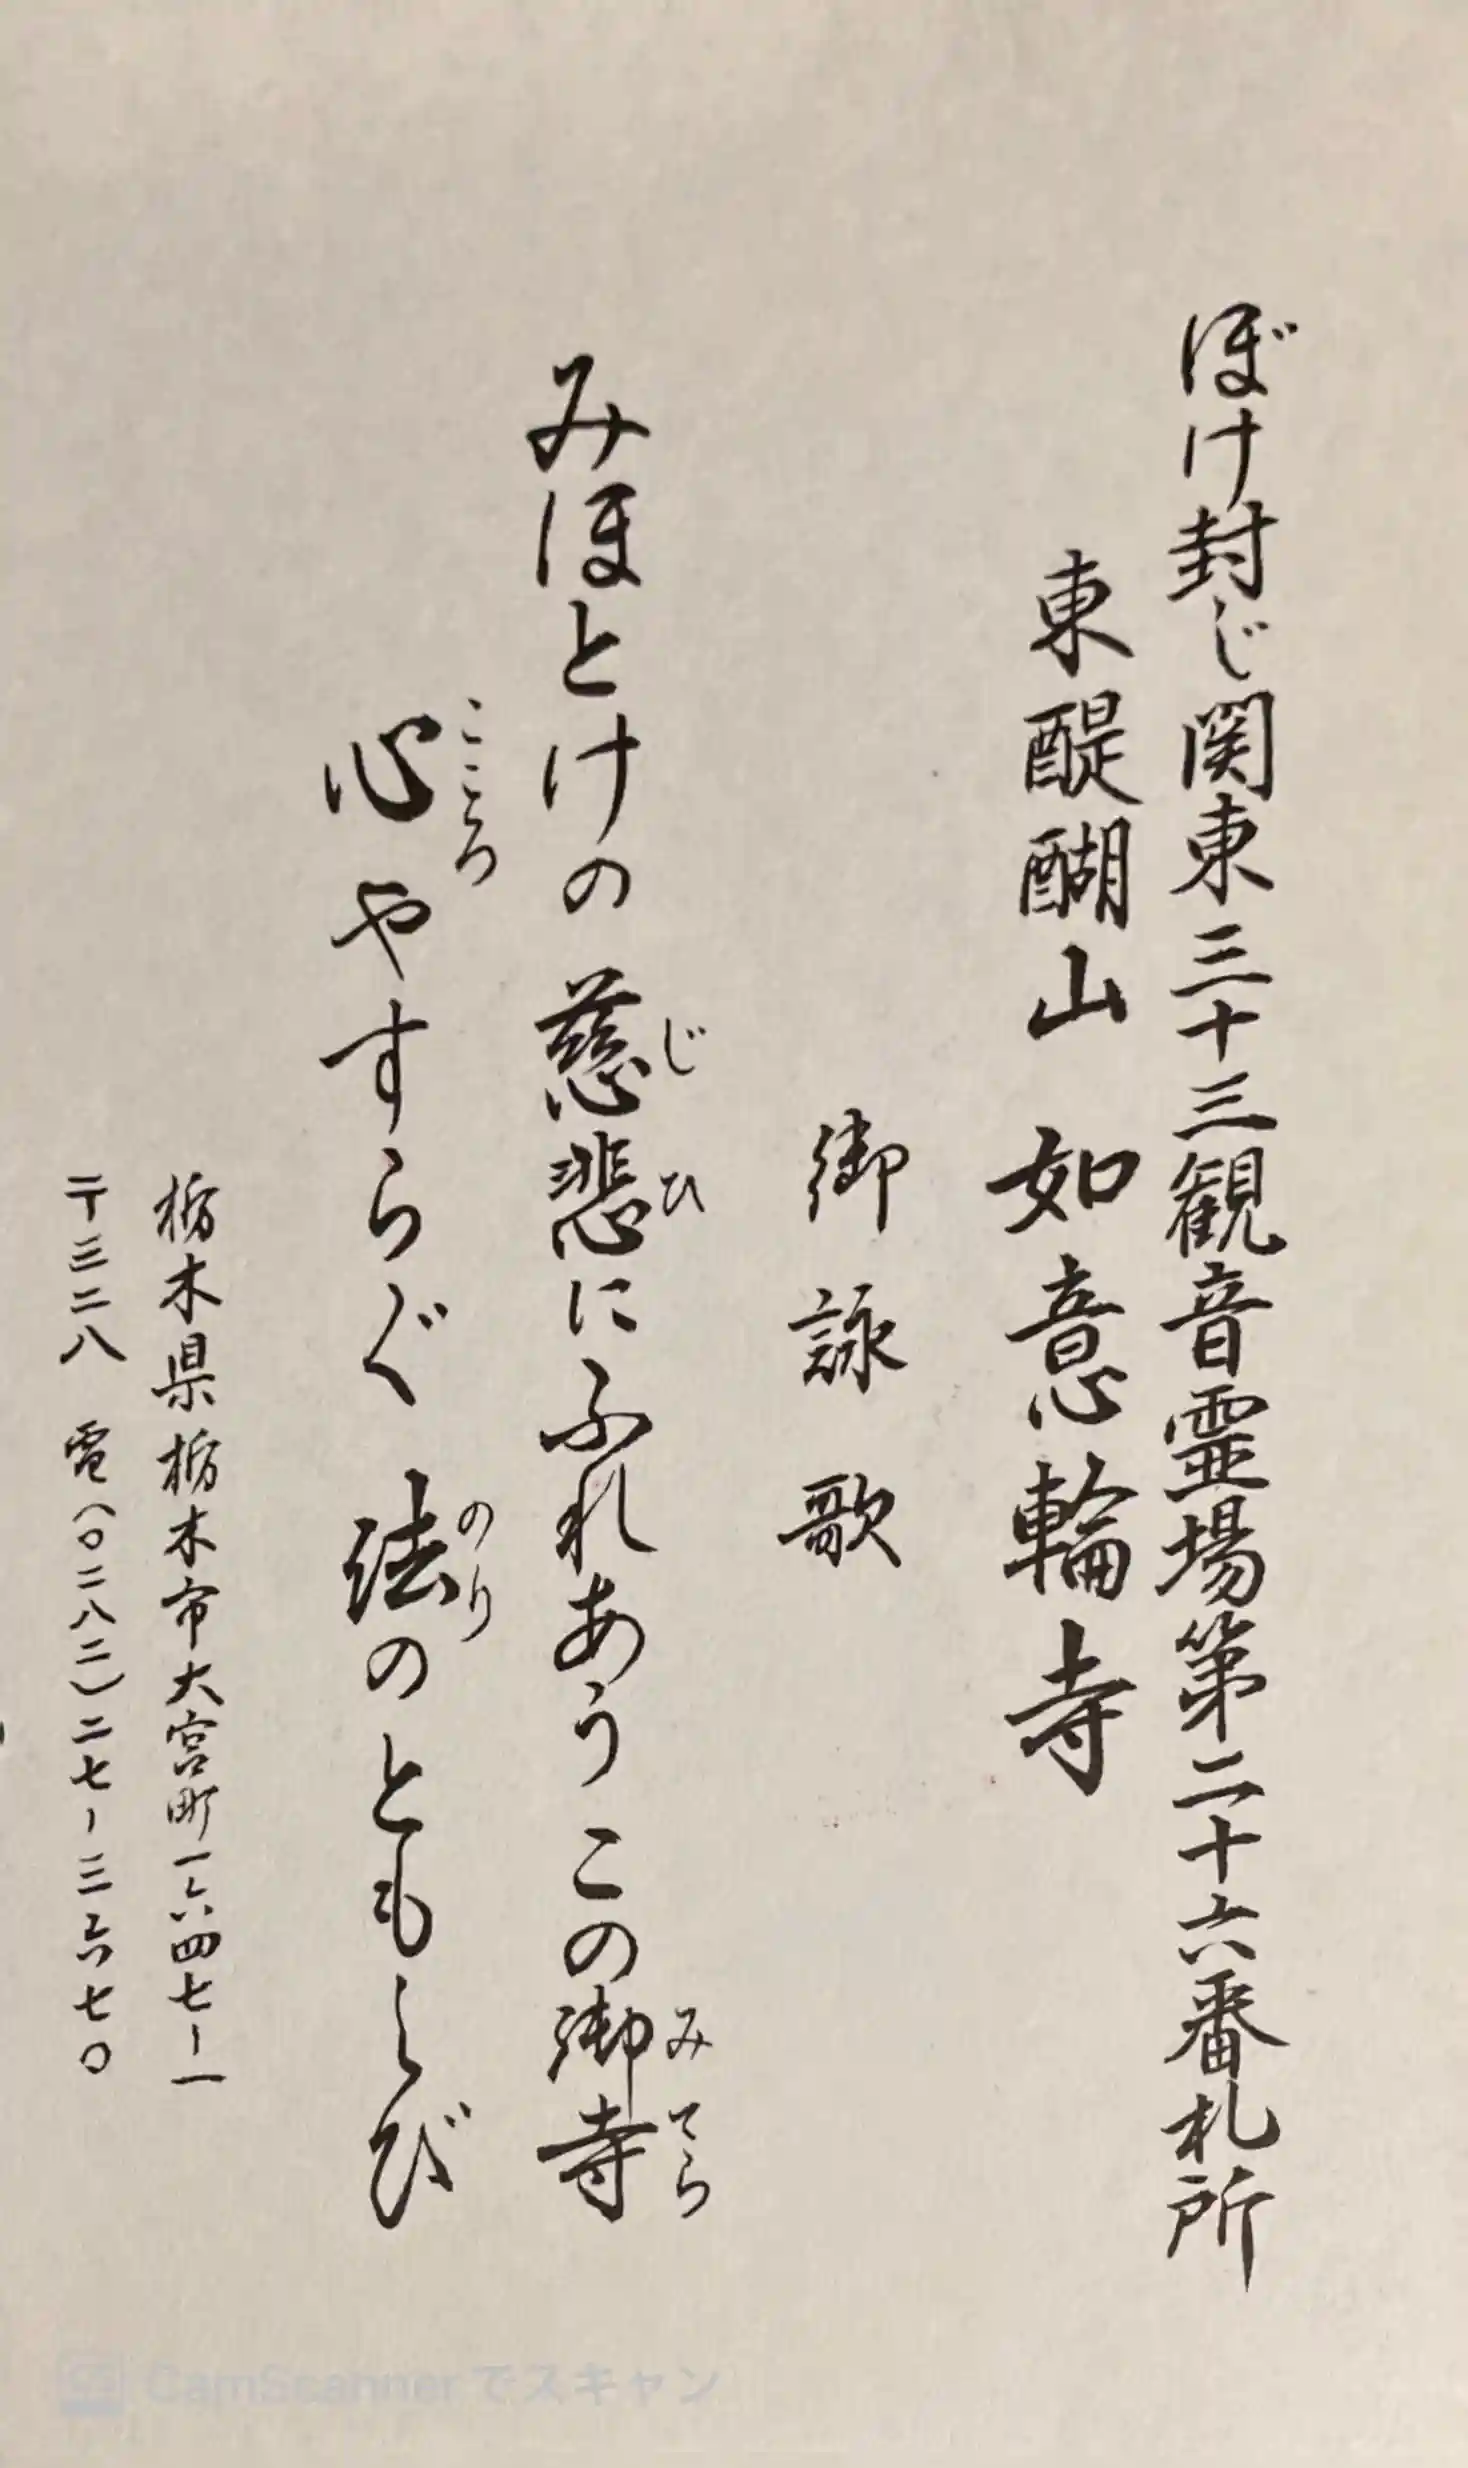 ぼけ封じ関東三十三観音霊場第二十六番札所
東醍醐山 如意輪寺
御詠歌
みほとけの慈悲にふれあう この御寺
じひ
みてら
心やすらぐ 法のともしび
こころ
のり
栃木県栃木市大宮町一六四七ー一
〒三二八 電(〇二八二)二七ー三六七〇
CS CamScannerでスキャン